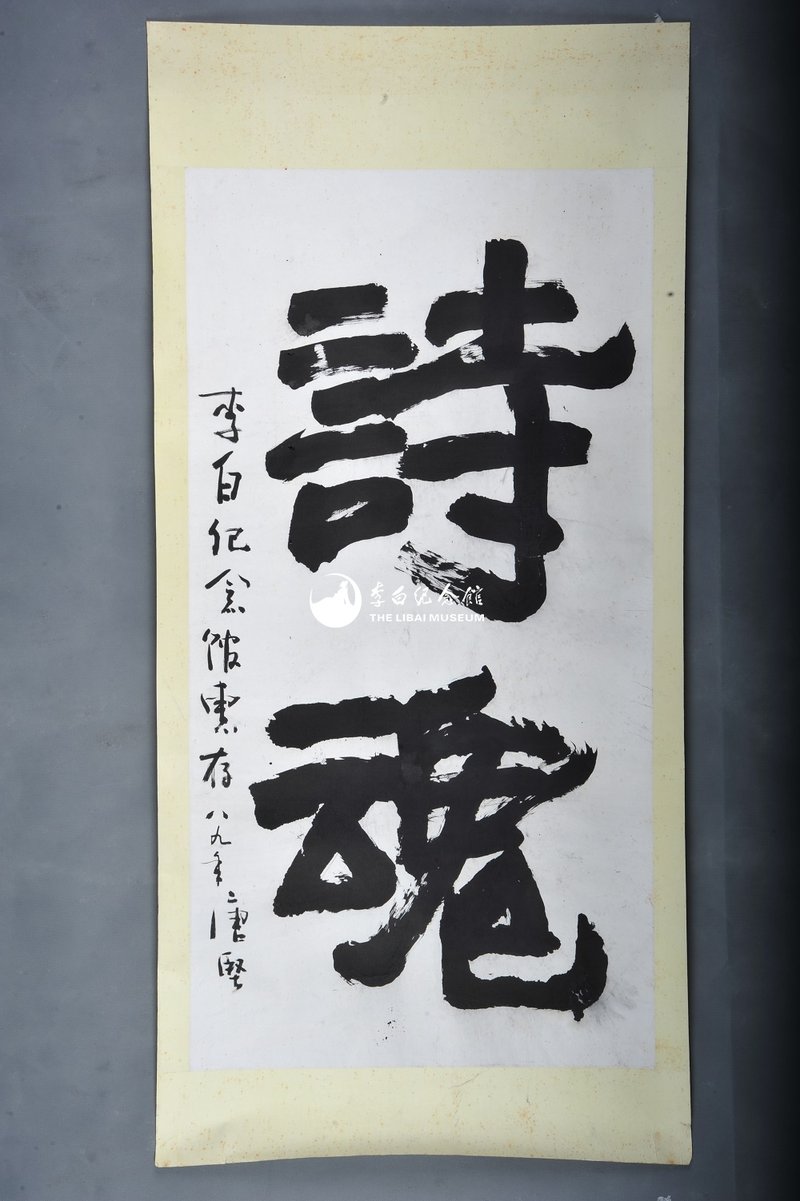 詩魂
李白纪念馆惠存 八九年 唐坚
李白纪念館
THE LIBAI MUSEUM